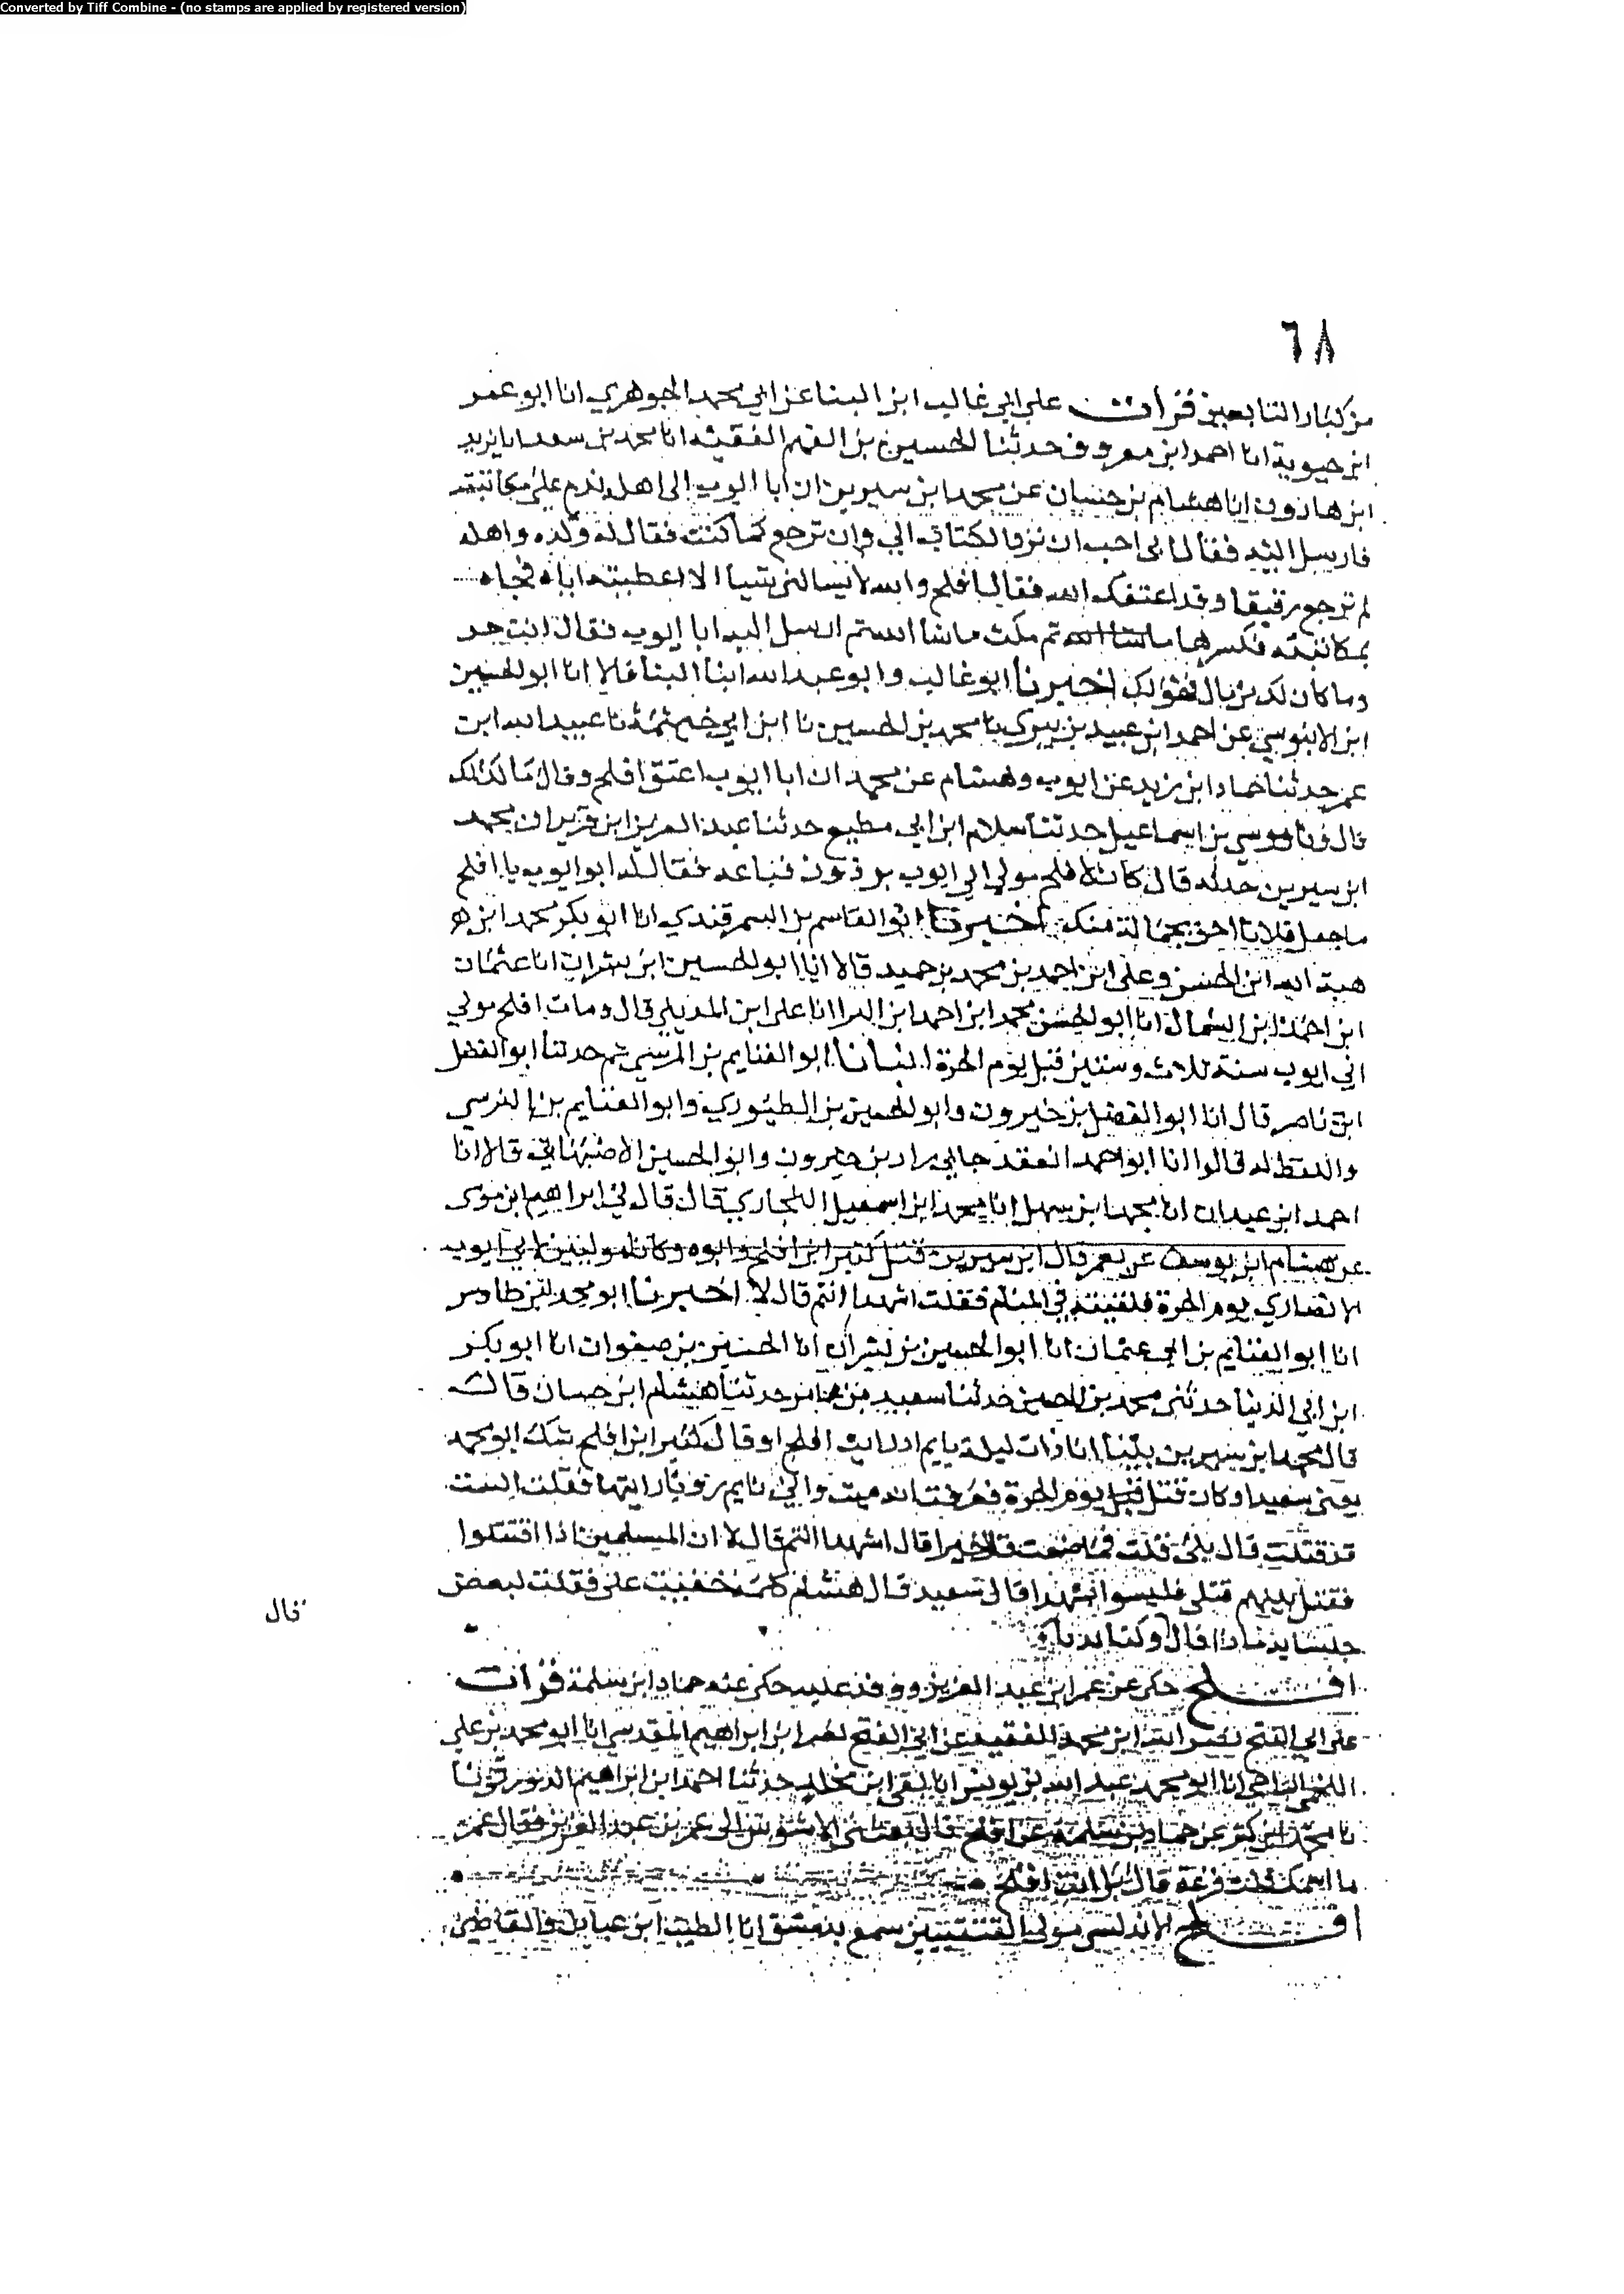 Converted by Tiff Combine - (no stamps are applied by registered version)
٦٨
من كبار التابعين قرات على ابي غالب ابن البنا عن ابي محمد الجوهري انا ابو عمر
ابن حيوية انا احمد ابن معروف حدثنا الحسين بن الفهم الفقيه انا محمد بن سعد انا يزيد
ابن هارون انا هشام بن حسان عن محمد ابن سيرين ان ابا ايوب الى اهله ندم على مكاتبته
فارسل اليه فقال اني احب ان ترد الكتاب الي وان ترجع كما كنت فقال له ولده واهله
لم ترجع رقيقا وقد اعتقك الله فقال افلح والله لا يسالني شيا الا اعطيته اياه فجاه
بمكاتبته فكسرها ماشا الله ثم مكث ماشا الله ثم ارسل اليه ابا ايوب فقال انت حر
وما كان لك من مال فهو لك اخبرنا ابو غالب وابو عبد الله ابنا البنا قالا انا ابو الحسين
ابن الابنوسي عن احمد ابن عبيد بن بيري نا محمد بن الحسين نا ابن ابي خيثمة نا عبيد الله ابن
عمر حدثنا حماد ابن زيد عن ايوب وهشام عن محمد ان ابا ايوب اعتق افلح وقال مالك لك
قال ونا موسى بن اسماعيل حدثنا سلام ابن ابي مطيع حدثنا عبد العزيز ابن قرير ان محمد
ابن سيرين حدثه قال كان لافلح مولى ابي ايوب برذون فباعه فقال له ابو ايوب يا افلح
ما جعل فلانا احق بجماله منك اخبرنا ابو القاسم بن السمرقندي انا ابو بكر محمد ابن هو
هبة الله ابن الحسن وعلى ابن احمد بن محمد بن حميد قالا انا ابو الحسين ابن بشران انا عثمان
ابن احمد ابن السماك انا ابو الحسن محمد ابن احمد ابن البرا انا على ابن المديني قال ومات افلح مولى
ابي ايوب سنة ثلاث وستين قتل يوم الحرة انبانا ابو الغنايم بن النرسي ثم حدثنا ابو الفضل
ابن ناصر قال انا ابو الفضل بن خيرون وابو الحسين بن الطيوري وابو الغنايم بن النرسي
واللفظ له قالوا انا ابو احمد زاد بن خيرون وابو الحسين الاصبهاني قالا انا
احمد ابن عبدان انا محمد ابن سهل انا محمد ابن اسمعيل البخاري قال قال لي ابراهيم ابن موسى
عن هشام ابن يوسف عن معمر قال ابن سيرين قتل كثير ابن افلح وابوه وكانا موليين لابي ايوب
الانصاري يوم الحرة فلقيته في المنام فقلت اشهدا انتم قال لا اخبرنا ابو محمد بن طاوس
انا ابو الغنايم بن ابي عثمان انا ابو الحسين بن بشران انا الحسين بن صفوان انا ابو بكر
ابن ابي الدنيا حدثني محمد بن الحسين حدثنا سعيد بن عامر حدثنا هشام ابن حسان قال
قال محمد ابن سيرين بينا انا ذات ليلة نايم اذ رايت افلح او قال كثير ابن افلح شك ابو محمد
يعني سعيدا وكان قتل يوم الحرة فعرفت انه ميت واني نايم رويا رايتها فقلت الست
قد قتلت قال بلى قلت فما صنعت قال خيرا قال اشهدا انتم قال لا ان المسلمين اذا اقتتلوا
فقتل بينهم قتلى فليسوا بشهدا قال سعيد قال هشام كلمة خفيت على فقلت لبعض
جلسايه ماذا قال
قال
افلح حكى عن عمر ابن عبد العزيز ووفد عليه حكى عنه حماد ابن سلمة قرات
على ابي الفتح نصر الله ابن محمد الفقيه عن ابي الفتح نصر ابن ابراهيم المقدسي انا ابو محمد بن علي
انا ابو محمد عبد الله بن يونس انا بقي ابن مخلد حدثنا احمد ابن ابراهيم الدورقي نا
نا محمد ابن كثير عن حماد بن سلمة عن افلح قال بعثني الى عمر بن عبد العزيز فقال عمر
ما اسمك قلت قرعة قال بل انت افلح
افلح الاندلسي مولى سمع بدمشق ابا الطيب ابن عبادل والقاضي